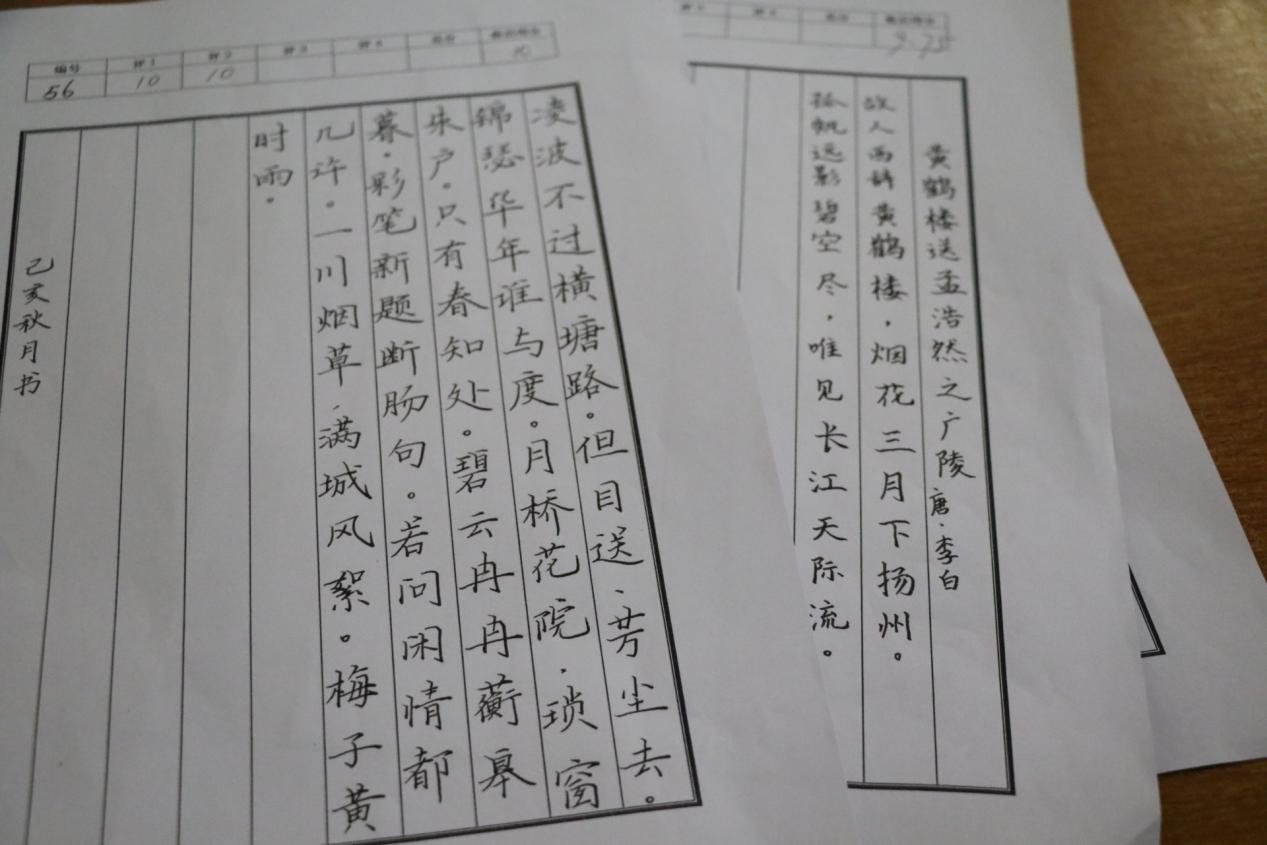 编号 评1 评2 评3 评4 总分 最后得分
56 10 10 10
凌波不过横塘路。但目送、芳尘去。
锦瑟华年谁与度。月桥花院，琐窗
朱户。只有春知处。碧云冉冉蘅皋
暮。彩笔新题断肠句。若问闲情都
几许。一川烟草，满城风絮。梅子黄
时雨。
己亥秋月书
评3 评4 总分 最后得分
9.75
黄鹤楼送孟浩然之广陵 唐·李白
故人西辞黄鹤楼，烟花三月下扬州。
孤帆远影碧空尽，唯见长江天际流。